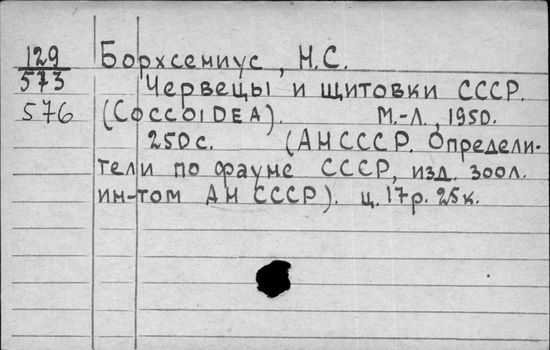 129 Борхсениус, Н.С.
573 Червецы и щитовки СССР.
576 (COCCOIDEA). М.-Л., 1950.
250с. (АН СССР. Определи-
тели по фауне СССР, изд. зоол.
ин-том АН СССР). ц. 17р. 25к.